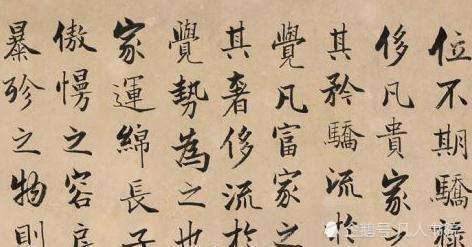 位不期驕祿
侈凡貴家之
其矜驕流於
覺凡富家之
其奢侈流於
覺勢為之也
家運綿長子
傲慢之容房
暴殄之物則
企鹅号